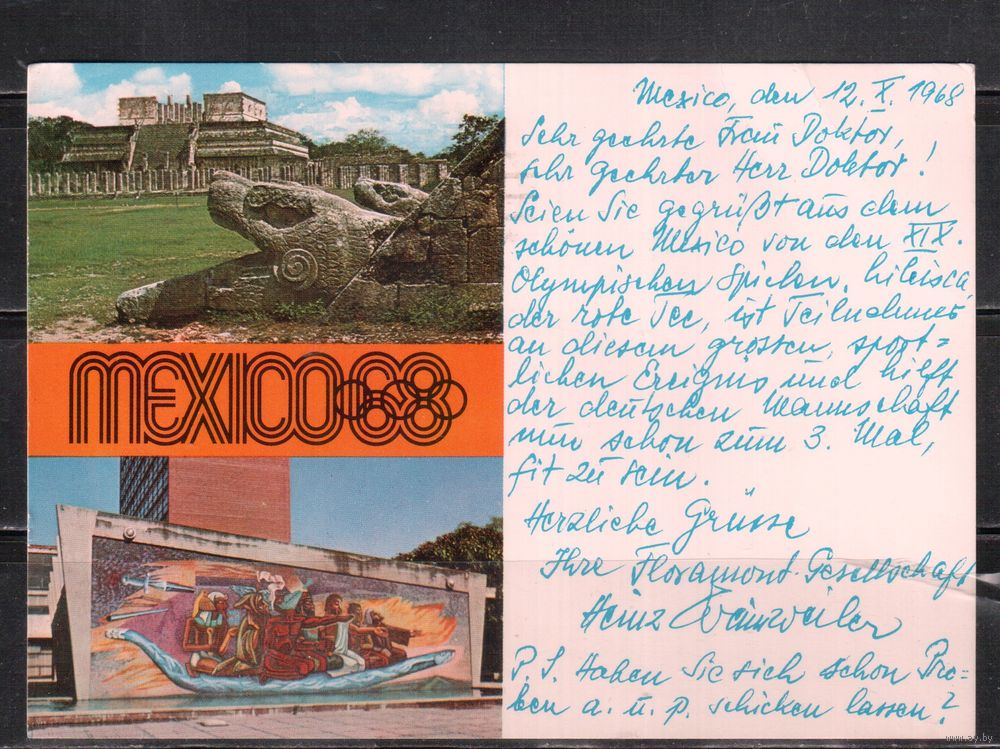 MEXICO68
Mexico, den 12. X. 1968
Sehr geehrte Frau Doktor,
sehr geehrter Herr Doktor!
Seien Sie gegrüßt aus dem
schönen Mexico von den XIX.
Olympischen Spielen.
der rote Tee, ist Teilnehmer
an diesem grossen, sport=
lichen Ereignis und hilft
der deutschen Mannschaft
nun schon zum 3. Mal,
fit zu sein.
Herzliche Grüsse
Ihre Floramont-Gesellschaft
Heinz
P.S. Haben Sie sich schon Pro=
ben a. u. p. schicken lassen?
www.ay.by